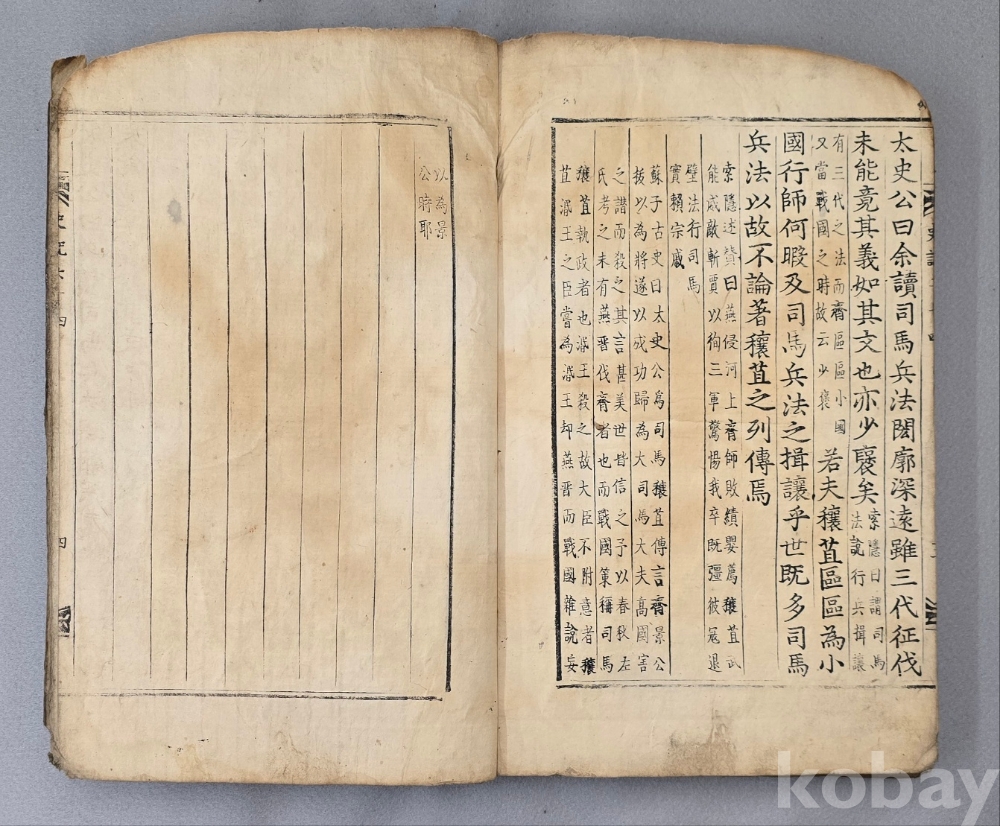 太史公曰余讀司馬兵法閎廓深遠雖三代征伐
未能竟其義如其文也亦少襃矣
索隱曰謂司馬
法說行兵揖讓
有三代之法而齊區區小國
又當戰國之時故云少襃
若夫穰苴區區為小
國行師何暇及司馬兵法之揖讓乎世既多司馬
兵法以故不論著穰苴之列傳焉
索隱述贊曰燕侵河上齊師敗績嬰薦穰苴武
能威敵斬賈以徇三軍驚惕我卒既彊彼寇退
壁法行司馬
實賴宗戚
蘇子古史曰太史公為司馬穰苴傳言齊景公
拔以為將遂以成功歸為大司馬大夫高國害
之譖而殺之其言甚美世皆信之予以春秋左
氏考之未有燕晋伐齊者也而戰國策稱司馬
穰苴執政者也湣王殺之故大臣不附意者穰
苴湣王之臣嘗為湣王却燕晋而戰國雜說妄
以為景
公時耶
史記六十四
四
kobay